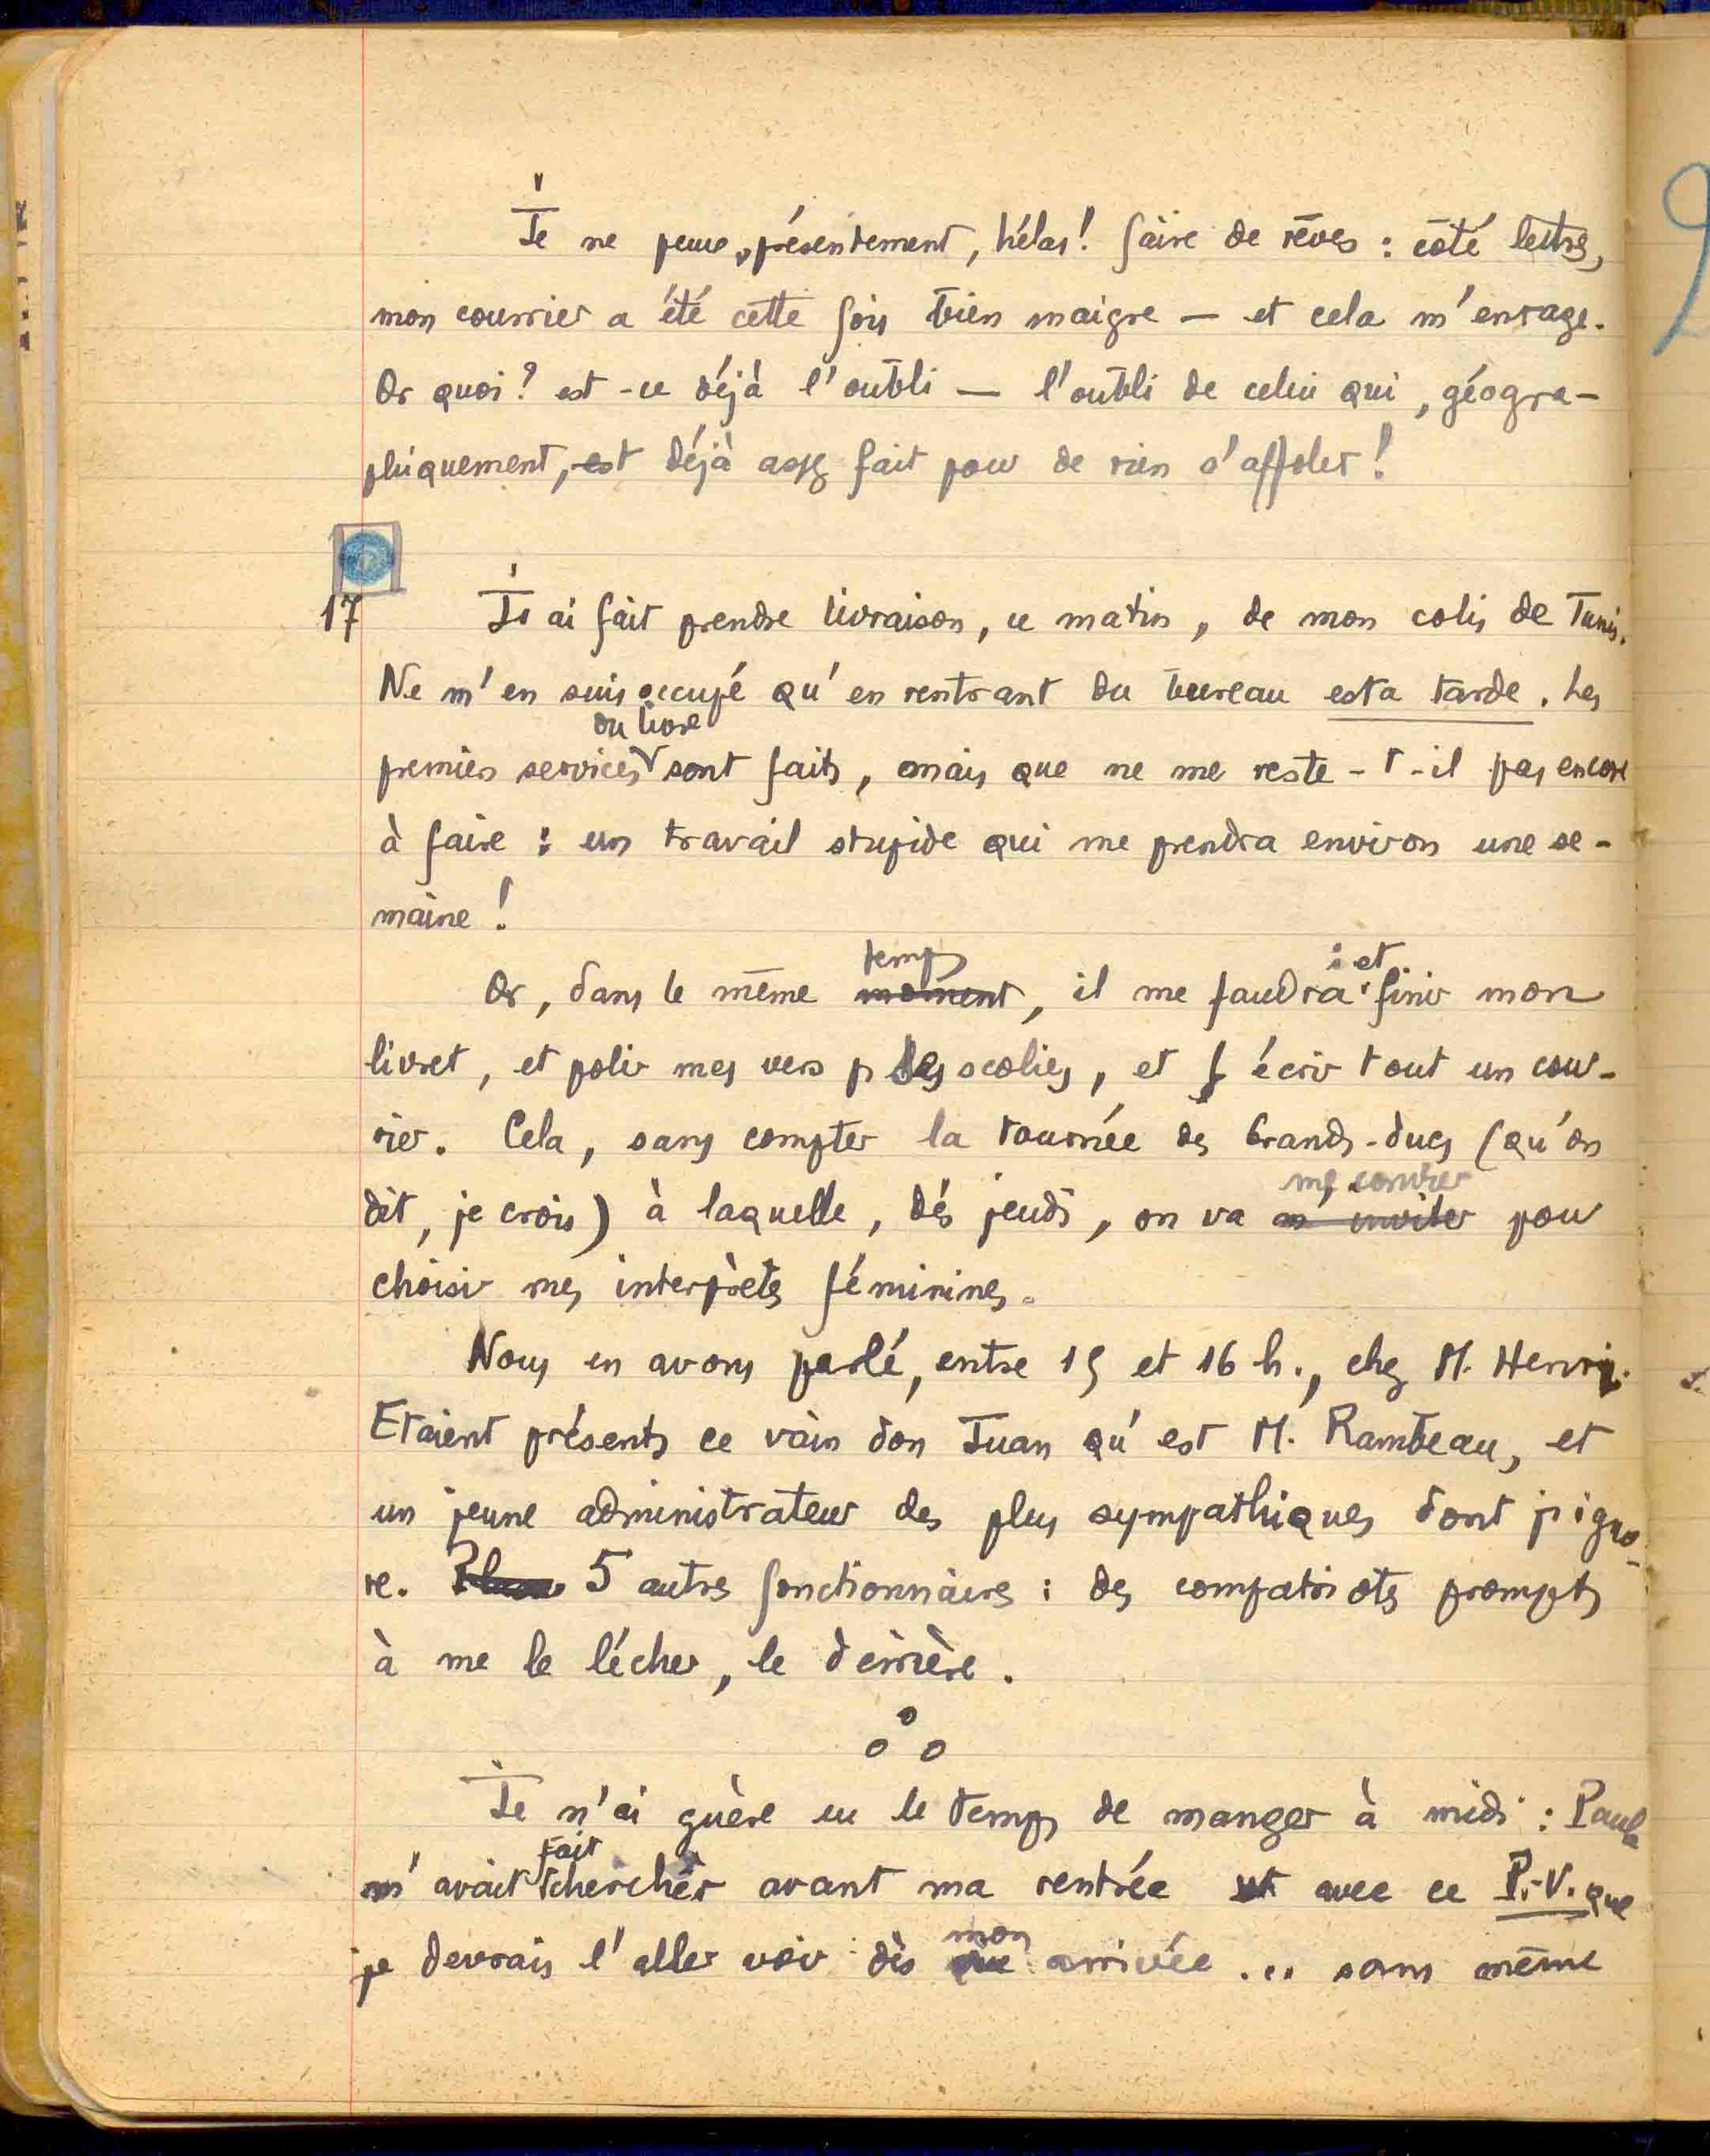 Je ne peux, présentement, hélas! faire de rêves : côté lettres,
mon courrier a été cette fois bien maigre — et cela m'enrage.
Or quoi? est-ce déjà l'oubli — l'oubli de celui qui, géogra-
phiquement, est déjà assez fait pour de rien s'affoler!
17
J'ai fait prendre livraison, ce matin, de mon colis de Tunis.
Ne m'en suis occupé qu'en rentrant du bureau esta tarde. Les
du livre
premiers services sont faits, mais que ne me reste-t-il pas encore
à faire : un travail stupide qui me prendra environ une se-
maine!
temps : et
Or, dans le même moment, il me faudra finir mon
livret, et polir mes vers p les scolies, et écrir tout un cour-
rier. Cela, sans compter la tournée des Grands-ducs (qu'on
me convier
dit, je crois) à laquelle, dès jeudi, on va m'inviter pour
choisir mes interprètes féminines.
Nous en avons parlé, entre 15 et 16 h., chez M. Henry.
Etaient présents ce vain don Juan qu'est M. Rambeau, et
un jeune administrateur des plus sympathiques dont j'igno-
re. 5 autres fonctionnaires : des compatriotes prompts
à me le lécher, le derrière.
Je n'ai guère eu le temps de manger à midi : Paul
fait
m'avait chercher avant ma rentrée avec ce P.-V. que
mon
je devrais l'aller voir dès que arrivée ... sans même